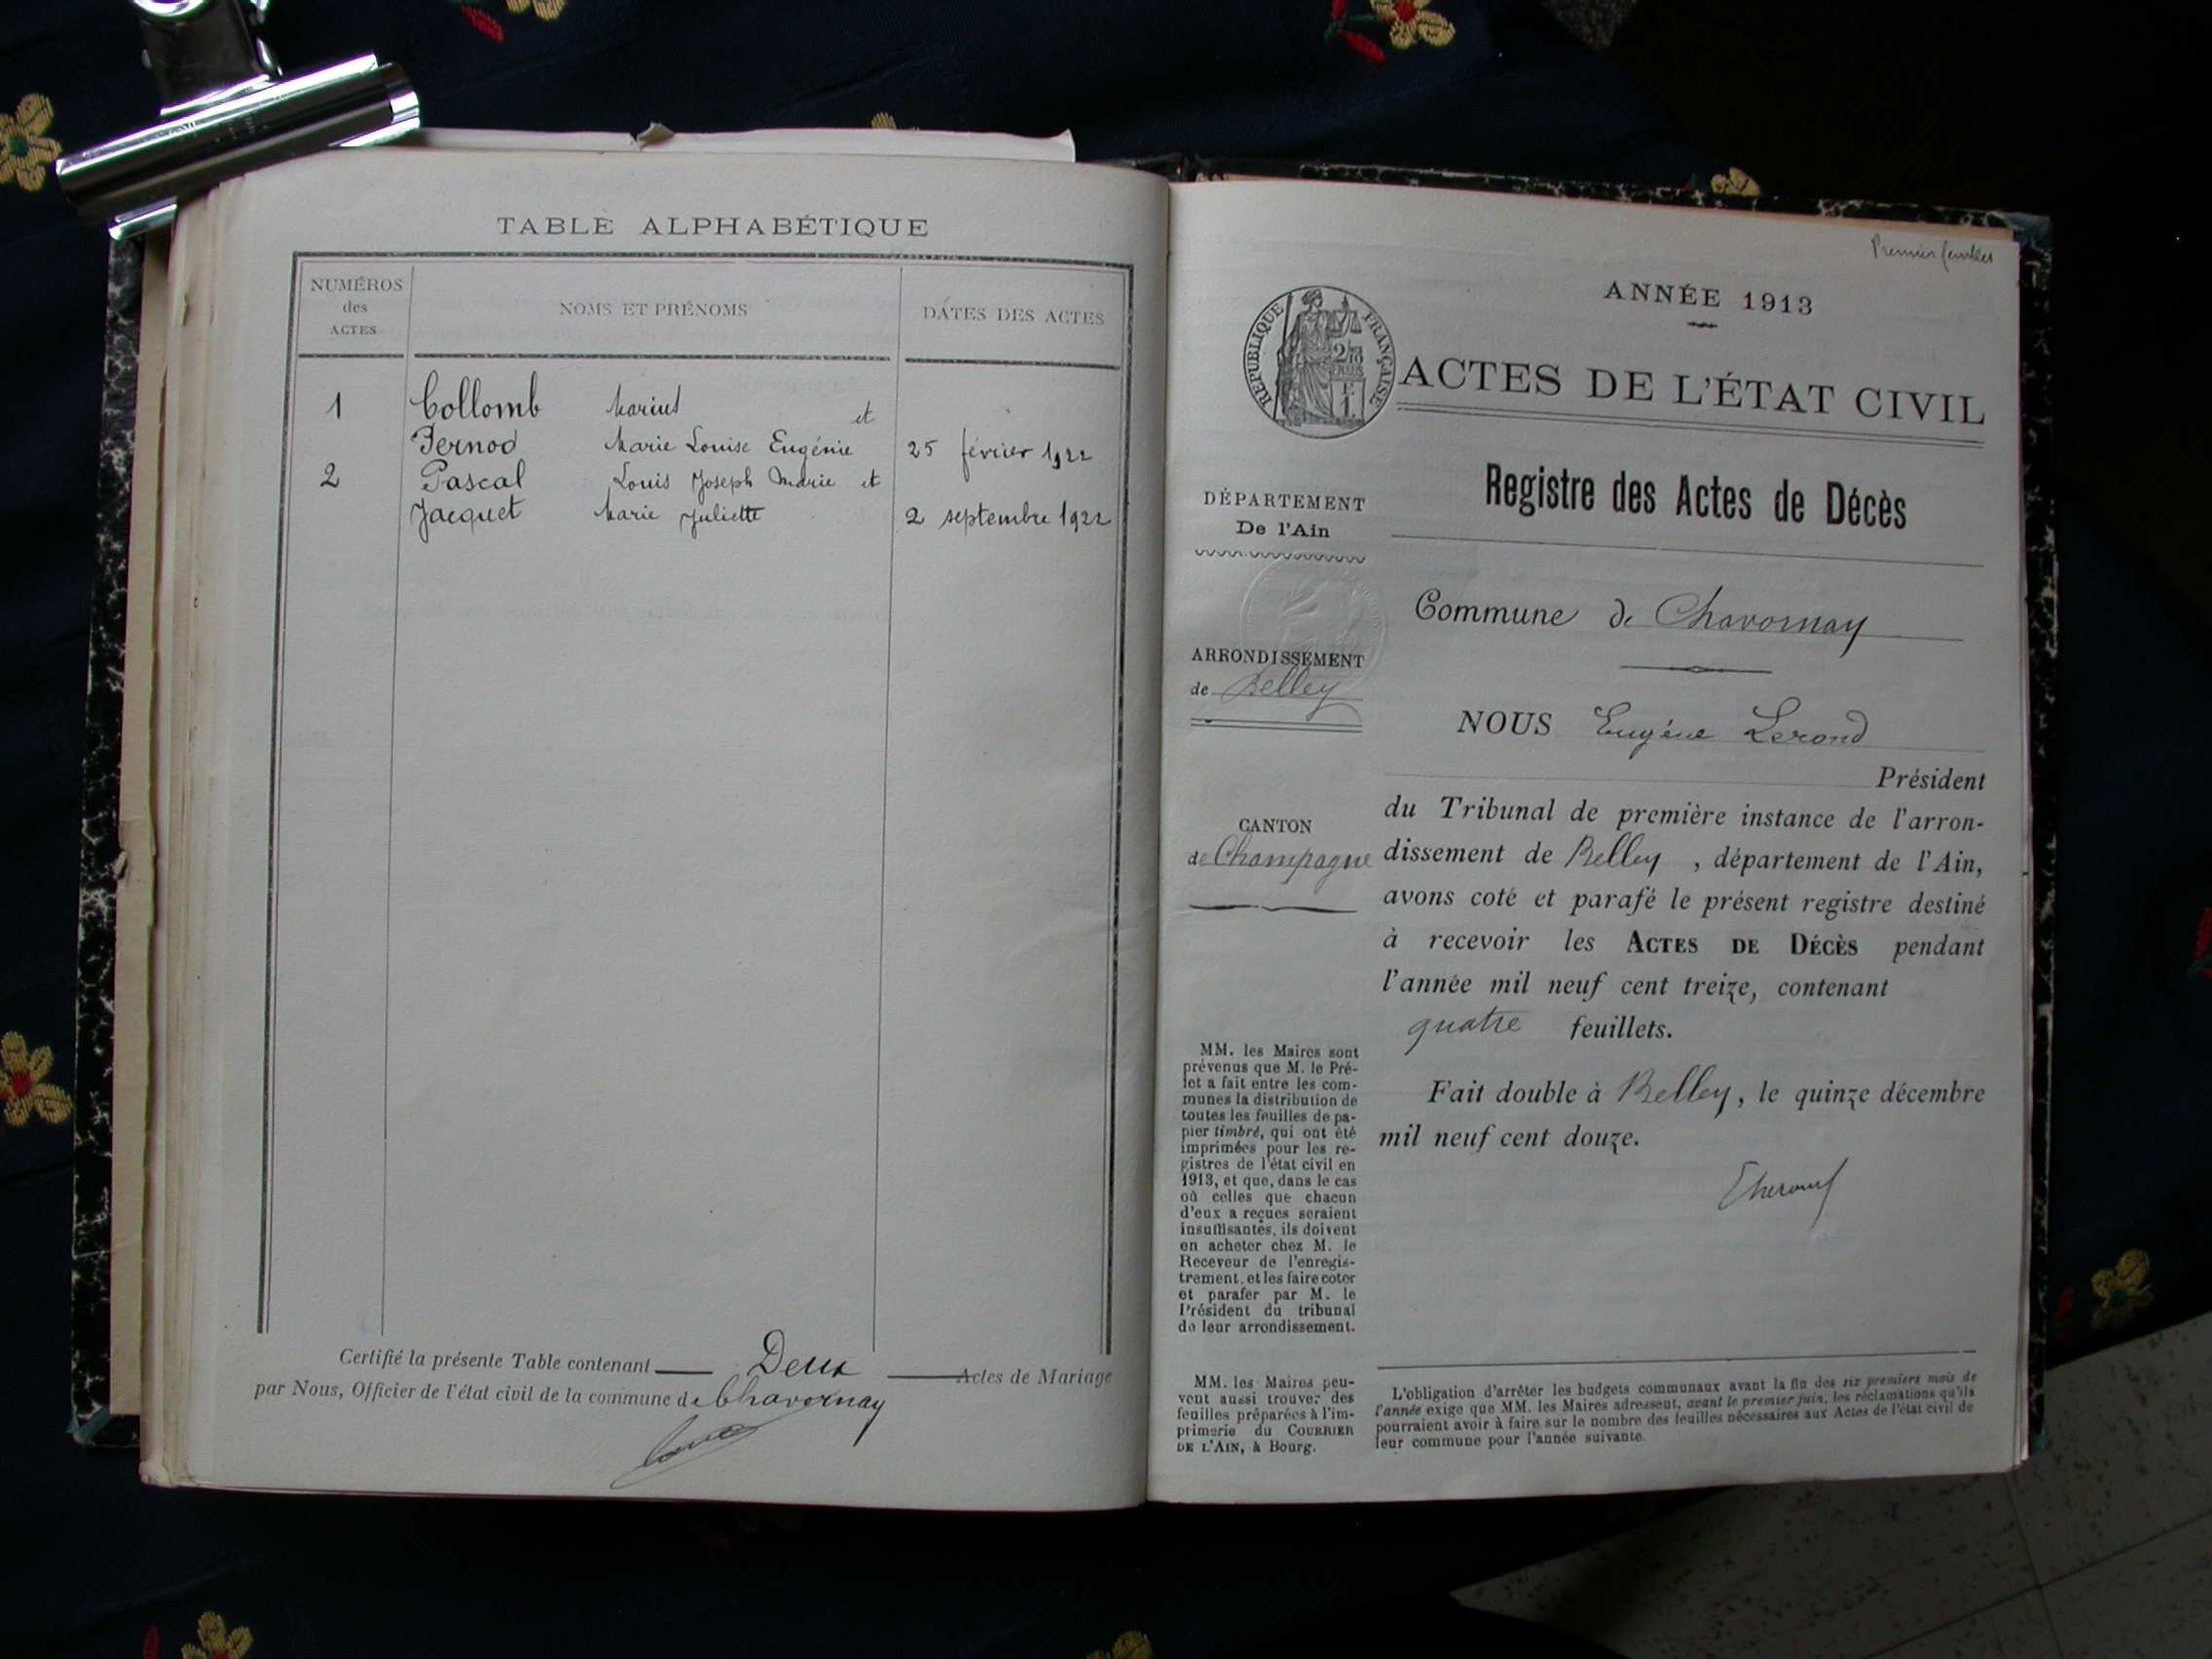 TABLE ALPHABÉTIQUE
NUMÉROS
des
ACTES
NOMS ET PRÉNOMS
DATES DES ACTES
1 Collomb Marius et
Pernod Marie Louise Eugénie 25 février 1922
2 Pascal Louis Joseph Marie et
Jacquet Marie Juliette 2 septembre 1922
Certifié la présente Table contenant Deux Actes de Mariage
par Nous, Officier de l'état civil de la commune de Chavornay
Premier feuillet
ANNÉE 1913
RÉPUBLIQUE FRANÇAISE
ACTES DE L'ÉTAT CIVIL
Registre des Actes de Décès
DÉPARTEMENT
De l'Ain
Commune de Chavornay
ARRONDISSEMENT
de Belley
NOUS Eugène Lerond
Président
CANTON
de Champagne
du Tribunal de première instance de l'arron-
dissement de Belley, département de l'Ain,
avons coté et parafé le présent registre destiné
à recevoir les ACTES DE DÉCÈS pendant
l'année mil neuf cent treize, contenant
quatre feuillets.
Fait double à Belley, le quinze décembre
mil neuf cent douze.
MM. les Maires sont
prévenus que M. le Pré-
fet a fait entre les com-
munes la distribution de
toutes les feuilles de pa-
pier timbré, qui ont été
imprimées pour les re-
gistres de l'état civil en
1913, et que, dans le cas
où celles que chacun
d'eux a reçues seraient
insuffisantes, ils doivent
en acheter chez M. le
Receveur de l'enregis-
trement, et les faire coter
et parafer par M. le
Président du tribunal
de leur arrondissement.
MM. les Maires peu-
vent aussi trouver des
feuilles préparées à l'im-
primerie du COURRIER
DE L'AIN, à Bourg.
L'obligation d'arrêter les budgets communaux avant la fin des six premiers mois de
l'année exige que MM. les Maires adressent, avant le premier juin, les réclamations qu'ils
pourraient avoir à faire sur le nombre des feuilles nécessaires aux Actes de l'état civil de
leur commune pour l'année suivante.